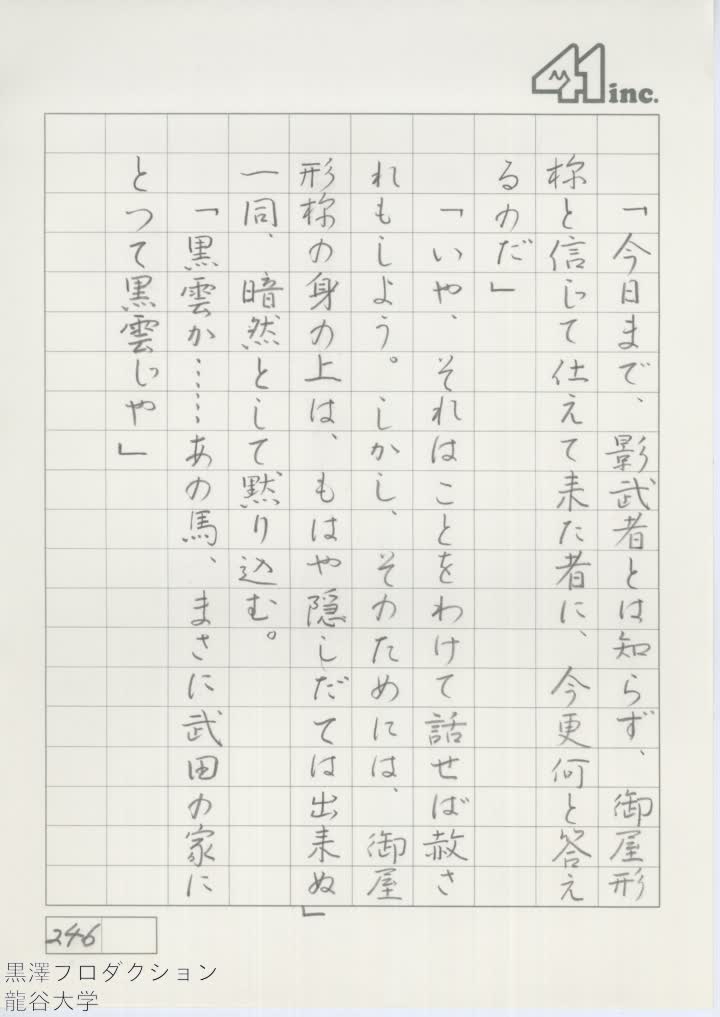 41 inc.
「今日まで、影武者とは知らず、御屋形
様と信じて仕えて来た者に、今更何と答え
るのだ」
「いや、それはことをわけて話せば赦さ
れもしよう。しかし、そのためには、御屋
形様の身の上は、もはや隠しだては出来ぬ」
一同、暗然として黙り込む。
「黒雲か……あの馬、まさに武田の家に
とつて黒雲じや」
246
黒澤フロダクション
龍谷大学